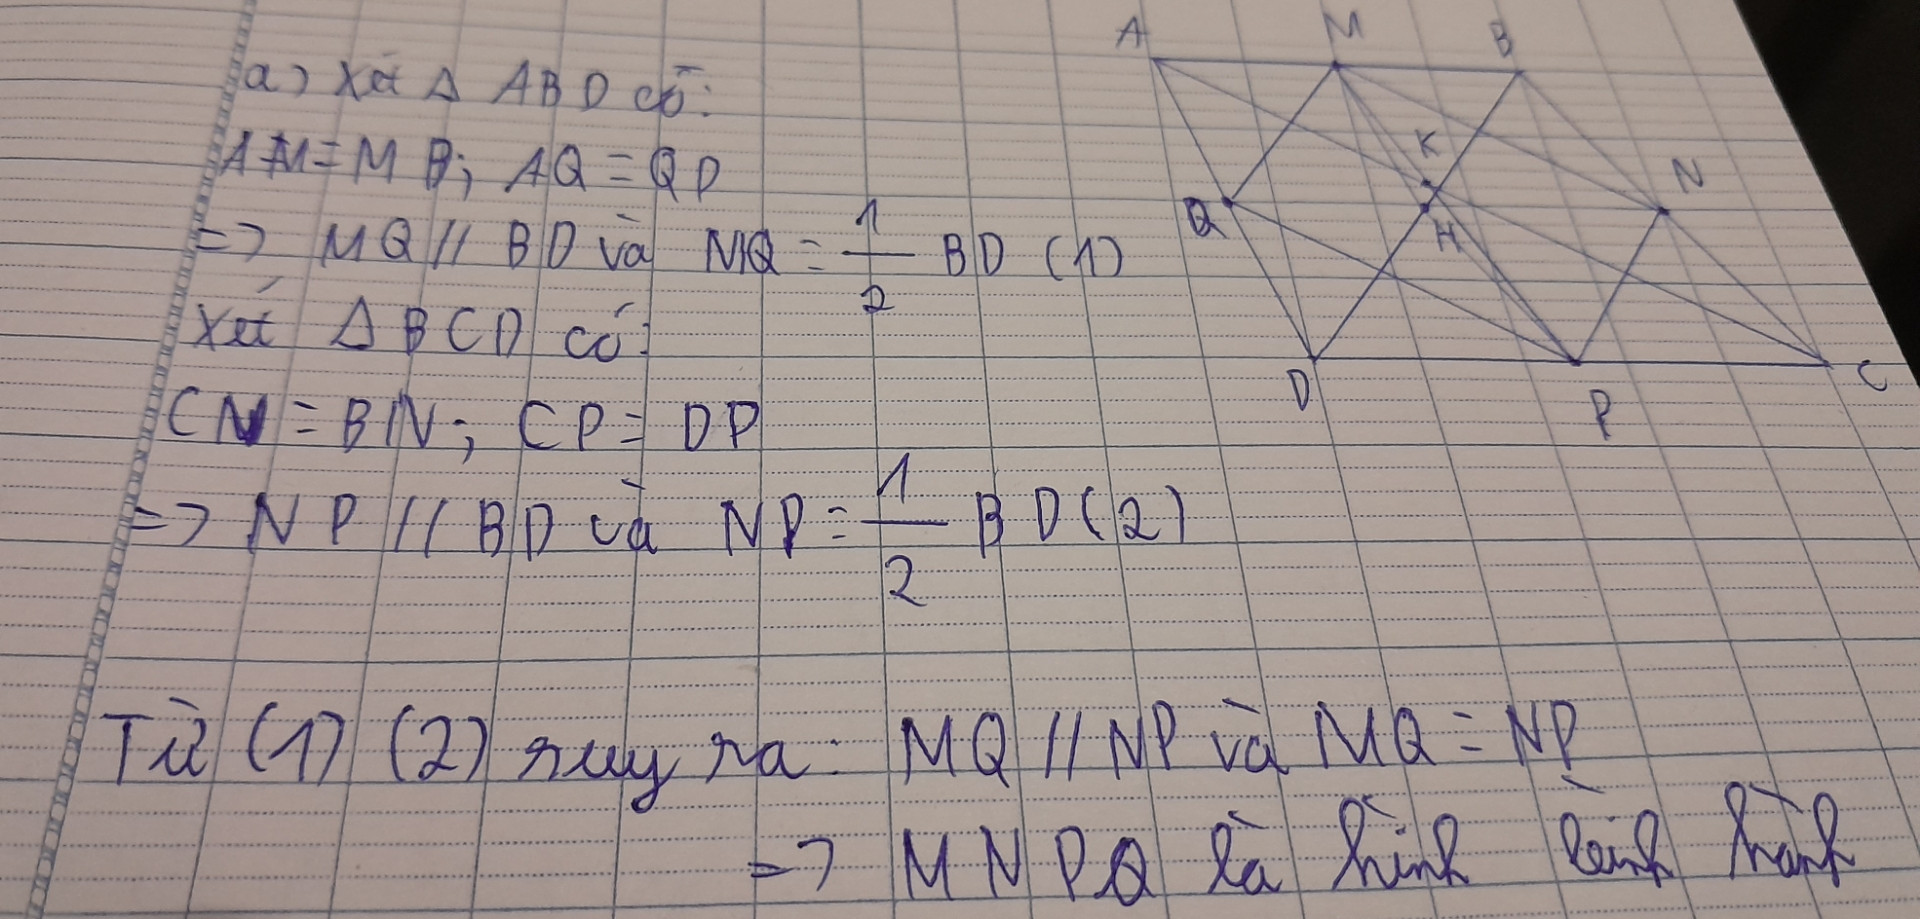 a) Xét Δ ABD có:
AM = MB; AQ = QD
=> MQ // BD và MQ = 1/2 BD (1)
Xét Δ BCD có:
CN = BN; CP = DP
=> NP // BD và NP = 1/2 BD (2)
Từ (1) (2) suy ra: MQ // NP và MQ = NP
=> MNPQ là hình bình hành
A M B
K
N
Q
H
D
P
C